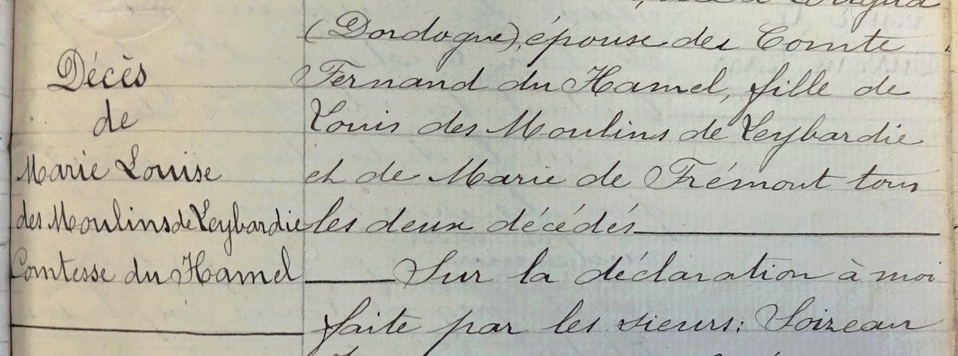 (Dordogne), épouse des Comte
Fernand du Hamel, fille de
Louis des Moulins de Leybardie
et de Marie de Frémont tous
les deux décédés
Sur la déclaration à moi
faite par les sieurs: Soizeau
Décès
de
Marie Louise
des Moulins de Leybardie
Comtesse du Hamel